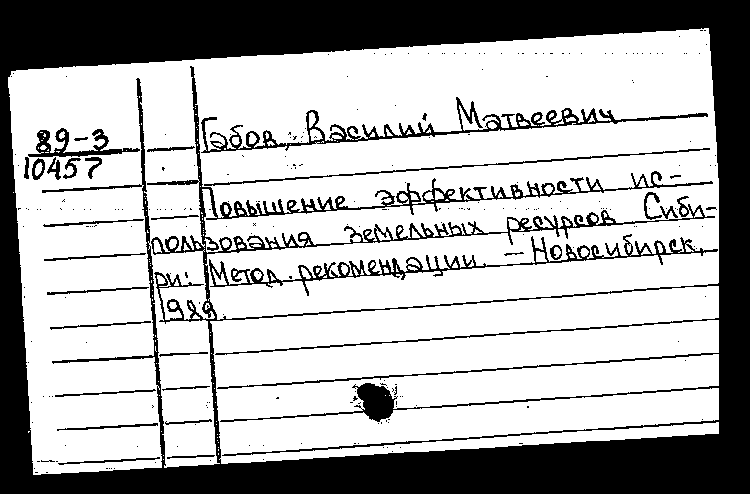 89-3
10457
Габов, Василий Матвеевич
Повышение эффективности ис-
пользования земельных ресурсов Сиби-
ри: Метод. рекомендации. – Новосибирск,
1989.